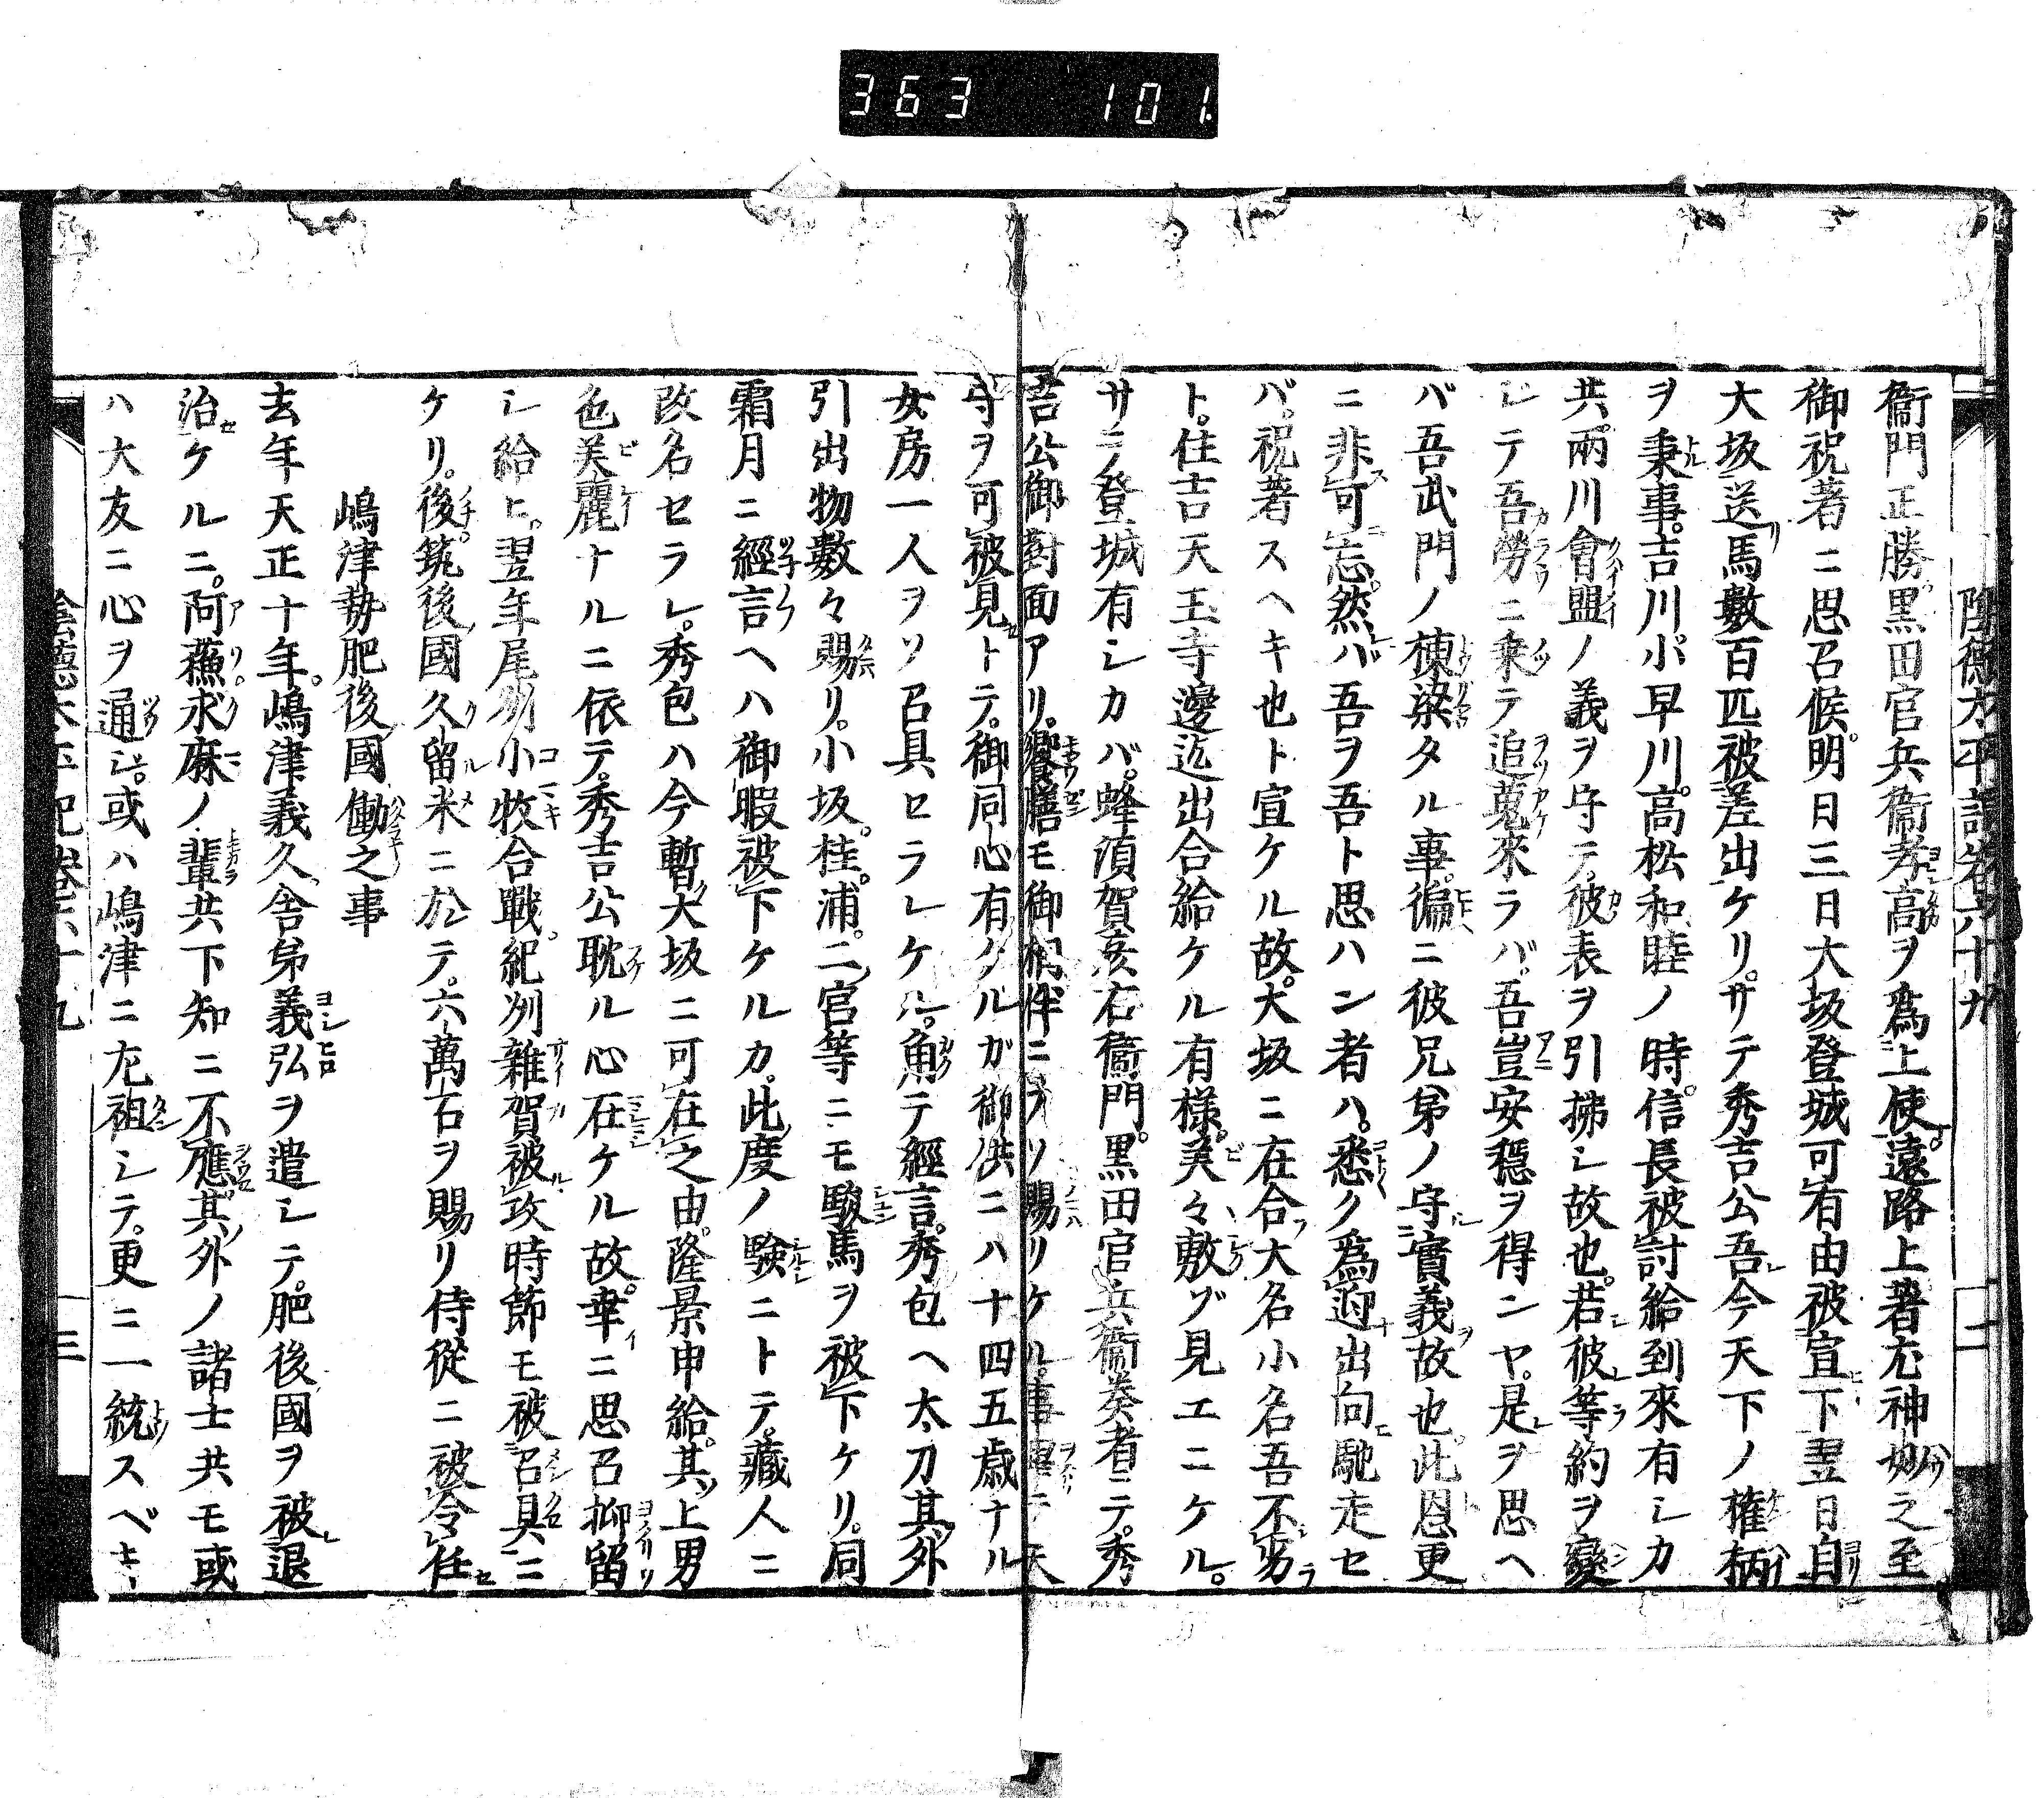 363 101
陰徳太平記卷六十九 二
衞門正勝黒田官兵衞孝高ヲ爲上使遠路上著尤神妙之至
御祝著ニ思召候。明日三日大坂登城可有由被宣下翌日自
大坂送馬數百匹被差出ケリ。サテ秀吉公吾今天下ノ權柄
ヲ秉事。吉川小早川。高松和睦ノ時。信長被討給到來有シカ
共。兩川會盟ノ義ヲ守テ。彼表ヲ引拂シ故也。若彼等約ヲ變
シテ吾勞ニ乘テ追蒐來ラバ。吾豈安穩ヲ得ンヤ。是ヲ思ヘ
バ吾武門ノ棟梁タル事。偏ニ彼兄弟ノ守實義故也。此恩更
ニ非可忘。然バ吾ヲ吾ト思ハン者ハ。悉ク爲迎出向馳走セ
バ。祝著スヘキ也ト宣ケル故。大坂ニ在合大名小名吾不劣
ト。住吉天王寺邊迄出合給ケル有樣。美々敷ゾ見エニケル。
サテ登城有シカバ。蜂須賀彦右衞門。黒田官兵衞奏者ニテ。秀
吉公御對面アリ。饗膳モ御相伴ニテソ賜リケル。事畢テ天
守ヲ可被見トテ。御同心有タルガ御供ニハ十四五歳ナル
女房一人ヲソ召具セラレケル。角テ經言。秀包ヘ太刀其外
引出物數々賜リ。小坂。桂。浦。二宮等ニモ駿馬ヲ被下ケリ。同
霜月ニ經言ヘハ御暇被下ケルカ。此度ノ驗ニトテ。藏人ニ
改名セラレ。秀包ハ今暫大坂ニ可在之由。隆景申給。其上男
色美麗ナルニ依テ。秀吉公耽ル心在ケル故。幸ニ思召抑留
シ給ヒ。翌年尾州小牧合戰。紀州雜賀被攻時節モ被召具ニ
ケリ。後。筑後國久留米ニ於テ。六萬石ヲ賜リ侍從ニ被令任
嶋津勢肥後國働之事
去年天正十年。嶋津義久舎弟義弘ヲ遣シテ。肥後國ヲ被退
治ケルニ。阿蘓求麻ノ輩共下知ニ不應其外ノ諸士共モ或
ハ大友ニ心ヲ通シ。或ハ嶋津ニ尤祖シテ。更ニ一統スベキ
陰徳太平記卷六十九 三